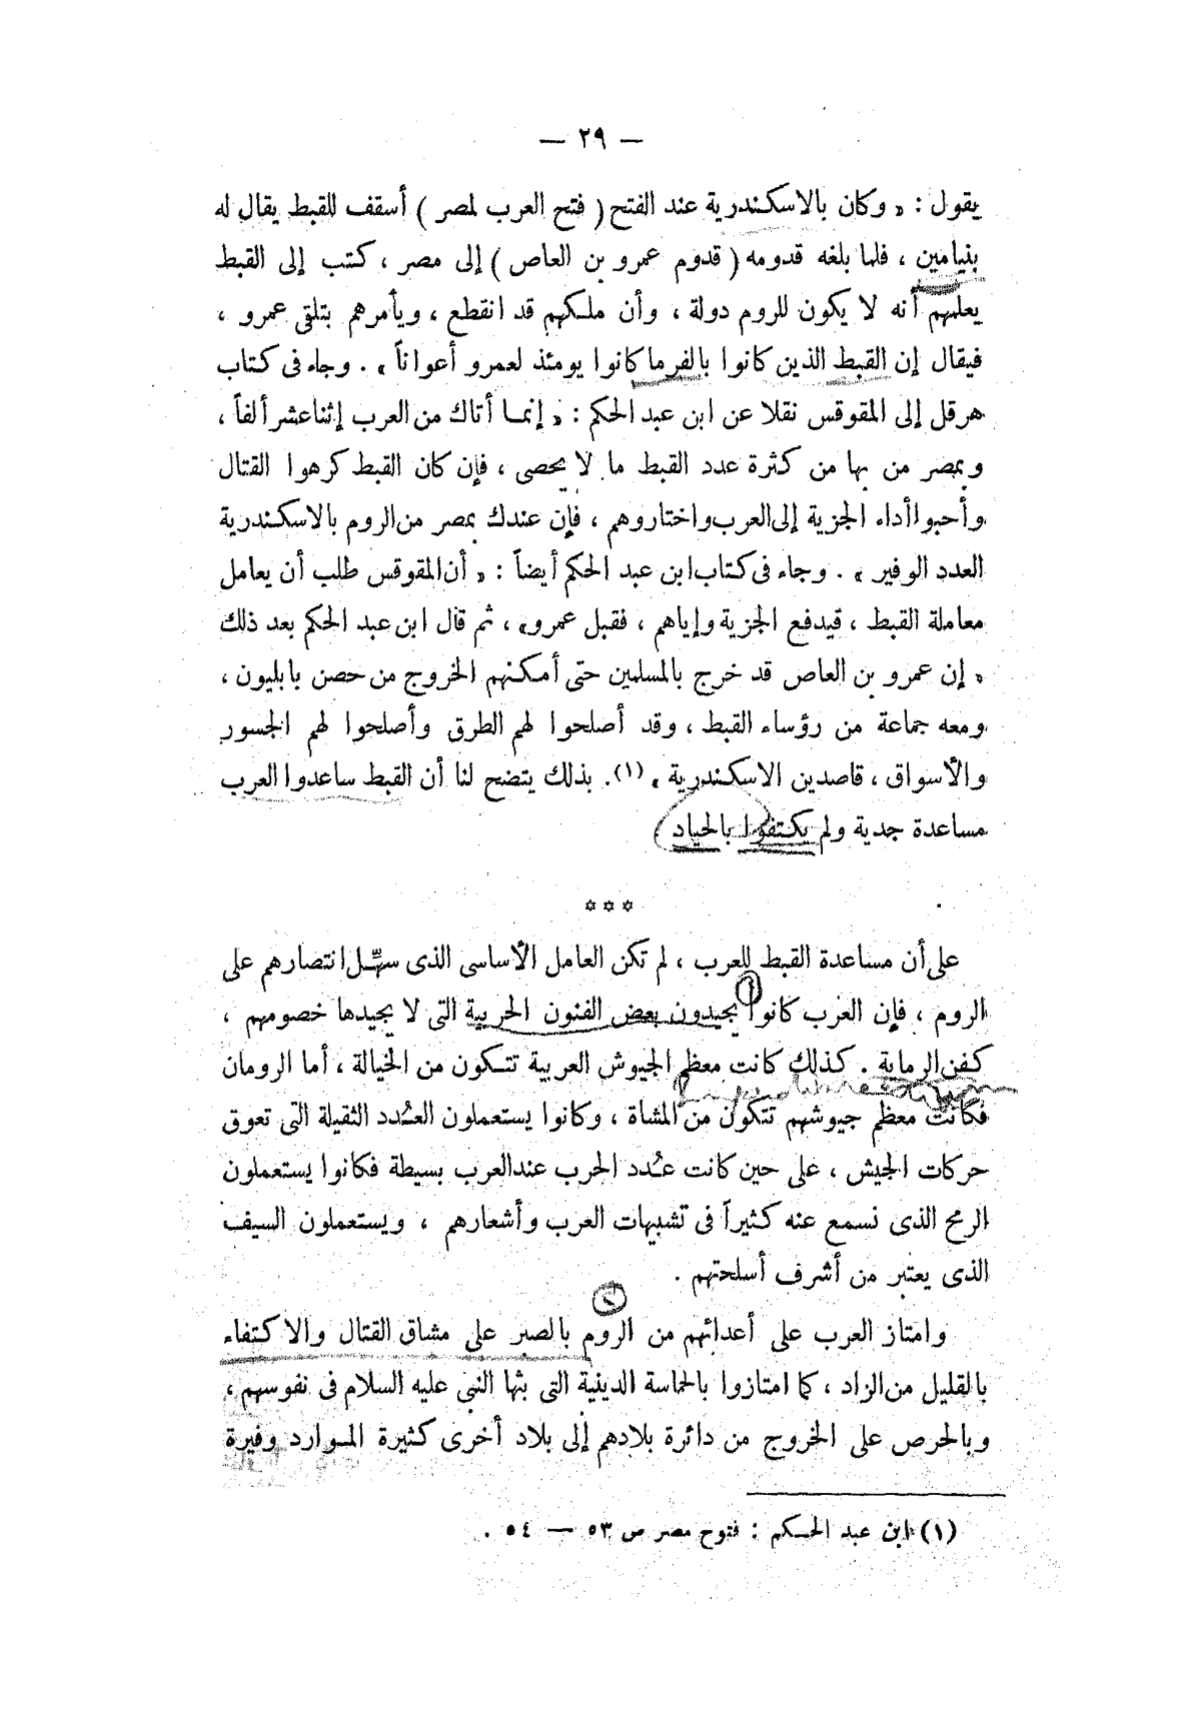 — ٢٩ —
يقول : « وكان بالاسكندرية عند الفتح ( فتح العرب لمصر ) أسقف للقبط يقال له
بنيامين ، فلما بلغه قدومه ( قدوم عمرو بن العاص ) إلى مصر ، كتب إلى القبط
يعلمهم أنه لا يكون للروم دولة ، وأن ملكهم قد انقطع ، ويأمرهم بتلقى عمرو ،
فيقال إن القبط الذين كانوا بالفرما كانوا يومئذ لعمرو أعواناً » . وجاء فى كتاب
هرقل إلى المقوقس نقلا عن ابن عبد الحكم : « إنما أتاك من العرب إثنا عشر ألفاً ،
وبمصر من بها من كثرة عدد القبط ما لا يحصى ، فإن كان القبط كرهوا القتال
وأحبوا أداء الجزية إلى العرب واختاروهم ، فإن عندك بمصر من الروم بالاسكندرية
العدد الوفير » . وجاء فى كتاب ابن عبد الحكم أيضاً : « أن المقوقس طلب أن يعامل
معاملة القبط ، فيدفع الجزية وإياهم ، فقبل عمرو » ، ثم قال ابن عبد الحكم بعد ذلك
« إن عمرو بن العاص قد خرج بالمسلمين حتى أمكنهم الخروج من حصن بابليون ،
ومعه جماعة من رؤساء القبط ، وقد أصلحوا لهم الطرق وأصلحوا لهم الجسور
والأسواق ، قاصدين الاسكندرية » (١). بذلك يتضح لنا أن القبط ساعدوا العرب
مساعدة جدية ولم يكتفوا بالحياد
✡ ✡ ✡
على أن مساعدة القبط للعرب ، لم تكن العامل الأساسى الذى سهّل انتصارهم على
الروم ، فإن العرب كانوا يجيدون بعض الفنون الحربية التى لا يجيدها خصومهم ،
كفن الرماية . كذلك كانت معظم الجيوش العربية تتكون من الخيالة ، أما الرومان
فكانت معظم جيوشهم تتكون من المشاة ، وكانوا يستعملون العُدد الثقيلة التى تعوق
حركات الجيش ، على حين كانت عُدد الحرب عند العرب بسيطة فكانوا يستعملون
الرمح الذى نسمع عنه كثيراً فى تشبيهات العرب وأشعارهم ، ويستعملون السيف
الذى يعتبر من أشرف أسلحتهم .
وامتاز العرب على أعدائهم من الروم بالصبر على مشاق القتال والاكتفاء
بالقليل من الزاد ، كما امتازوا بالحماسة الدينية التى بثها النبى عليه السلام فى نفوسهم ،
وبالحرص على الخروج من دائرة بلادهم إلى بلاد أخرى كثيرة الموارد وفيرة
(١) ابن عبد الحكم : فتوح مصر ص ٥٣ — ٥٤ .